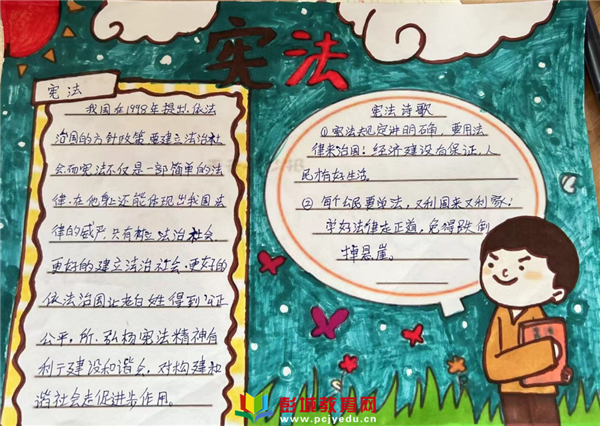 宪法
宪法
我国在1998年提出依法
治国的方针政策要建立法治社
会而宪法不仅是一部简单的法
律.在他身上还能体现出我国法
律的威严.只有树立法治社会
更好的建立法治社会.更好的
依法治国让老百姓得到公正
公平,所.弘扬宪法精神有
利于建设和谐会,对构建和
谐社会走促进步作用。
宪法诗歌
①宪法规定讲明确,要用法
律来治国:经济建设有保证,人
民有好生活
②每个公民要学法,又利国来又利家;
学好法律走正道,免得跌倒
掉悬崖。
彭城教育网
www.pcjyedu.cn